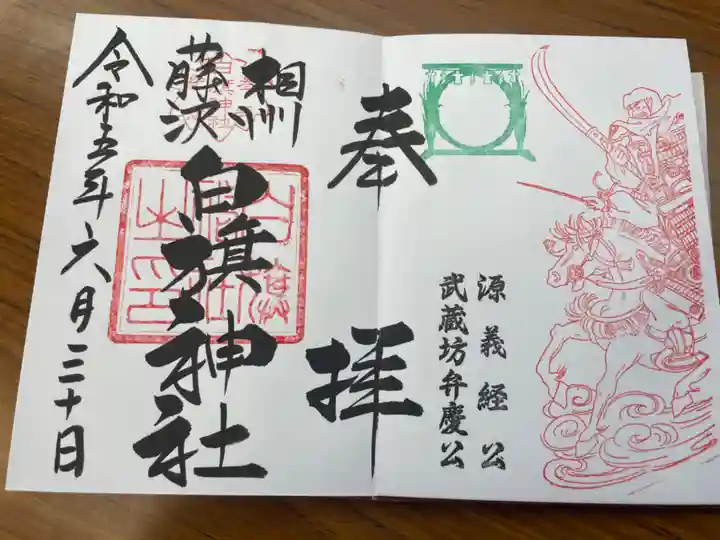 源義経公
武蔵坊弁慶公
奉拝
相州
藤沢
白旗神社
令和五年六月三十日